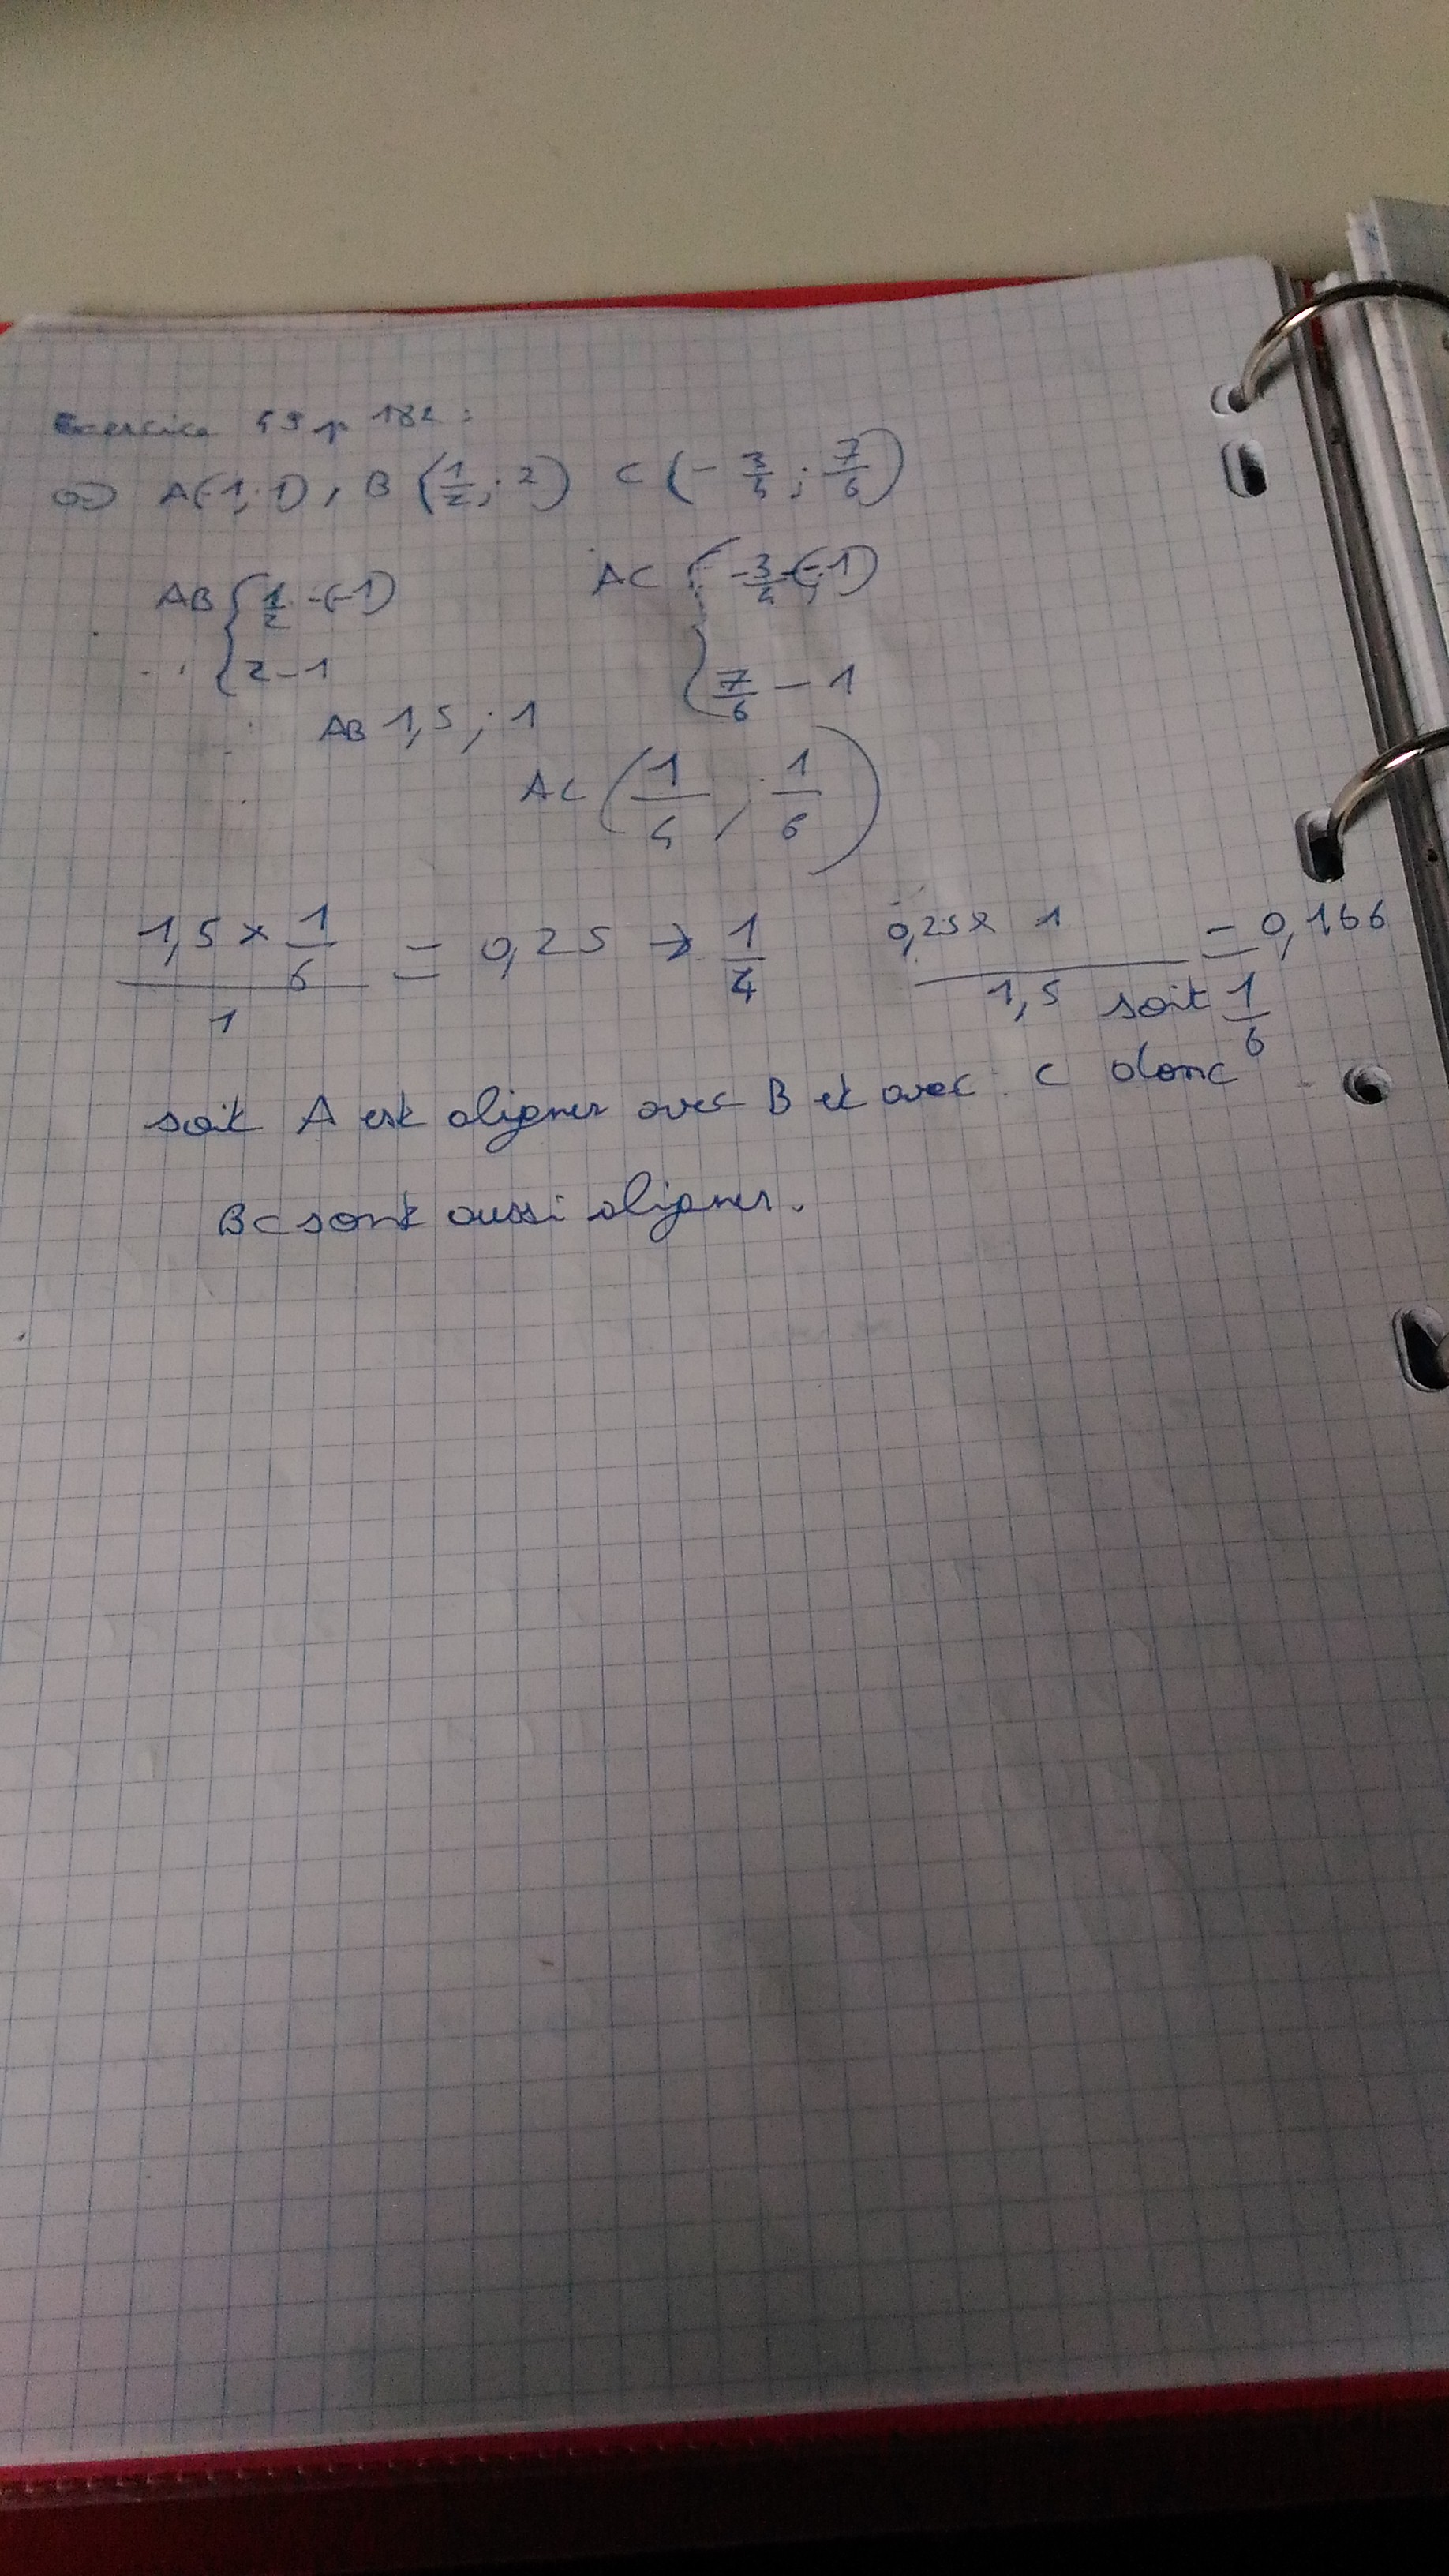 Exercice 49 p 182 :
a) A(-1;1), B (1/2; 2) C (-3/4; 7/6)
AB { 1/2 -(-1) AC { -3/4 -(-1)
{ 2-1 { 7/6 - 1
AB 1,5 ; 1
AC (1/4 ; 1/6)
(1,5 x 1/6)/1 = 0,25 → 1/4 (0,25 x 1)/1,5 = 0,166
soit 1/6
soit A est aligner avec B et avec C donc
BC sont aussi aligner.